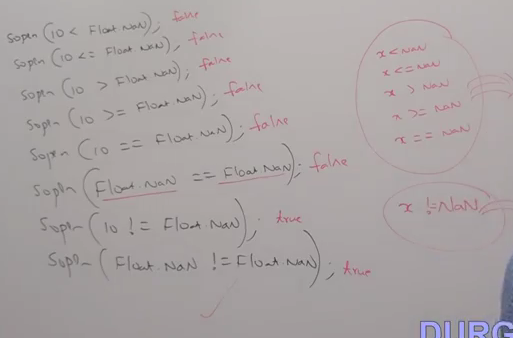 Sopln (10 < Float.NaN); false
Sopln (10 <= Float.NaN); false
Sopln (10 > Float.NaN); false
Sopln (10 >= Float.NaN); false
Sopln (10 == Float.NaN); false
Sopln (Float.NaN == Float.NaN); false
Sopln (10 != Float.NaN); true
Sopln (Float.NaN != Float.NaN); true
x < NaN
x <= NaN
x > NaN
x >= NaN
x == NaN
x != NaN
DURG